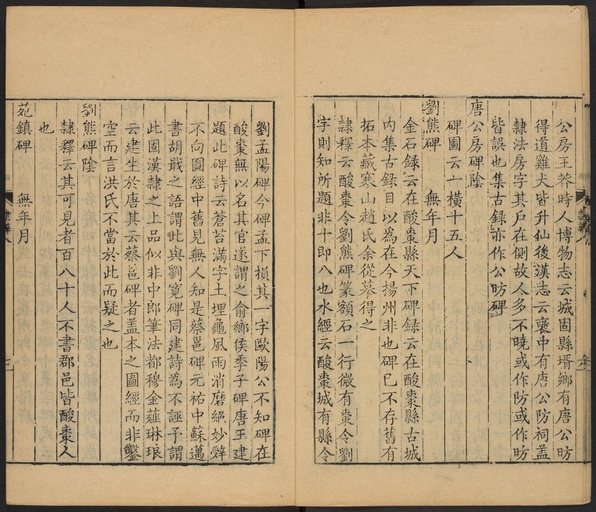 公房王莽時人博物志云城固縣壻鄉有唐公昉
得道雞犬皆升仙後漢志云褒中有唐公防祠蓋
隸法房字其戶在側故人多不曉或作防或作昉
皆誤也集古録亦作公昉碑
唐公房碑陰
碑圖云一橫十五人
劉熊碑　無年月
金石録云在酸棗縣天下碑録云在酸棗縣古城
内集古録目以為在今揚州非也碑已不存舊有
拓本藏寒山趙氏余從摹得之
隸釋云酸棗令劉熊碑篆額石一行微有棗令劉
字則知所題非十即八也水經云酸棗城有縣令
劉孟陽碑今碑孟下損其一字歐陽公不知碑在
酸棗無以名其官遂謂之俞鄉侯季子碑唐王建
題此碑詩云蒼苔滿字土埋龜風雨消磨絕妙辤
不向圖經中舊見無人知是蔡邕碑元祐中蘇邁
書胡戢之語謂此與劉寬碑同建詩為不誣予謂
此固漢隸之上品似非中郎筆法都穆金薤琳琅
云建生於唐其云蔡邕碑者蓋本之圖經而非鑿
空而言洪氏不當於此而疑之也
劉熊碑陰
隸釋云其可見者百八十人不書郡邑皆酸棗人
也
苑鎮碑　無年月